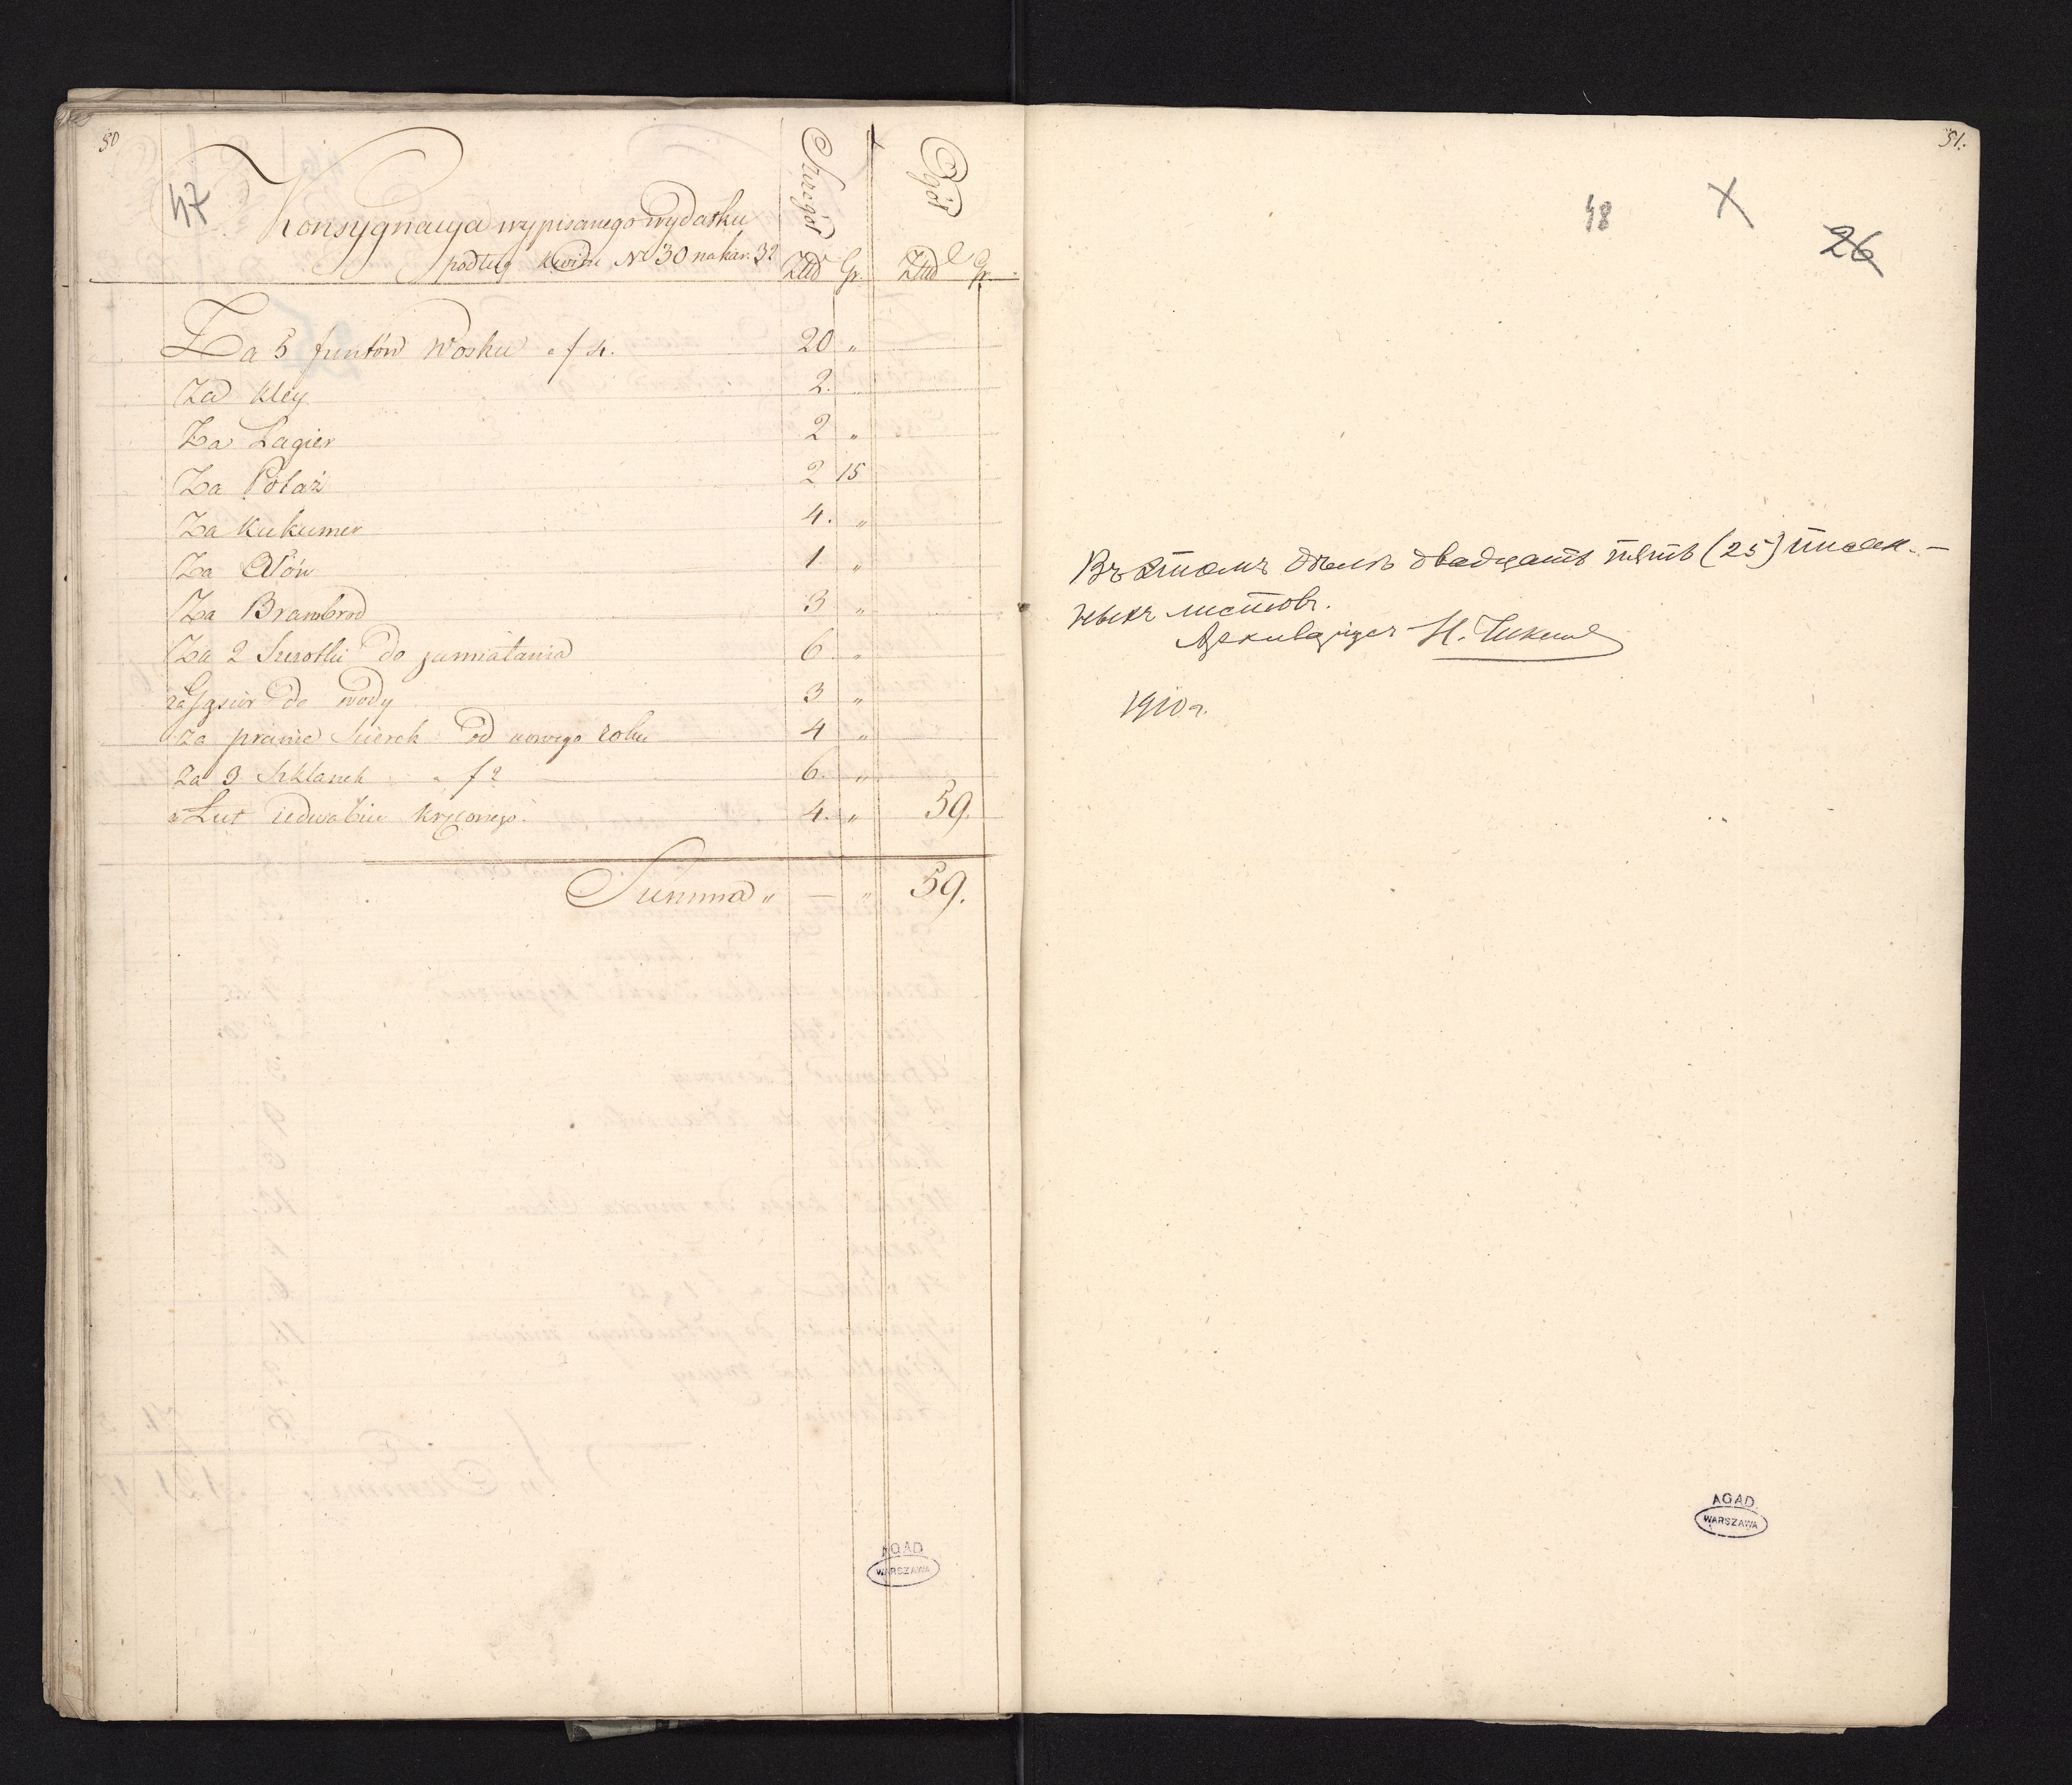 50
47
Szczegół
Ogół
Konsygnacya wypisanego wydatku
podług Kwitu N 30 na kar. 32
Złtd Gr. Złtd Gr.
Za 5 funtów Wosku a f 4. 20 "
Za Kley 2. "
Za Lagier 2 "
Za Potaż 2 15
Za Kukumer 4. "
Za Ałów 1 "
Za Brambrod 3 "
Za 2 Szczotki do zamiatania 6. "
za Gąsior do wody 3 "
Za pranie Scierek od nowego roku 4 "
Za 3 Szklanek a f 2 6. "
a Lut iedwabiu kręconego. 4. " 59.
Summa " — " 59.
AGAD
WARSZAWA
51.
48
X
26
Въ этомъ дѣлѣ двадцать пять (25) писан-
ныхъ листовъ.
Архиваріусъ Н.
1910 г.
AGAD
WARSZAWA